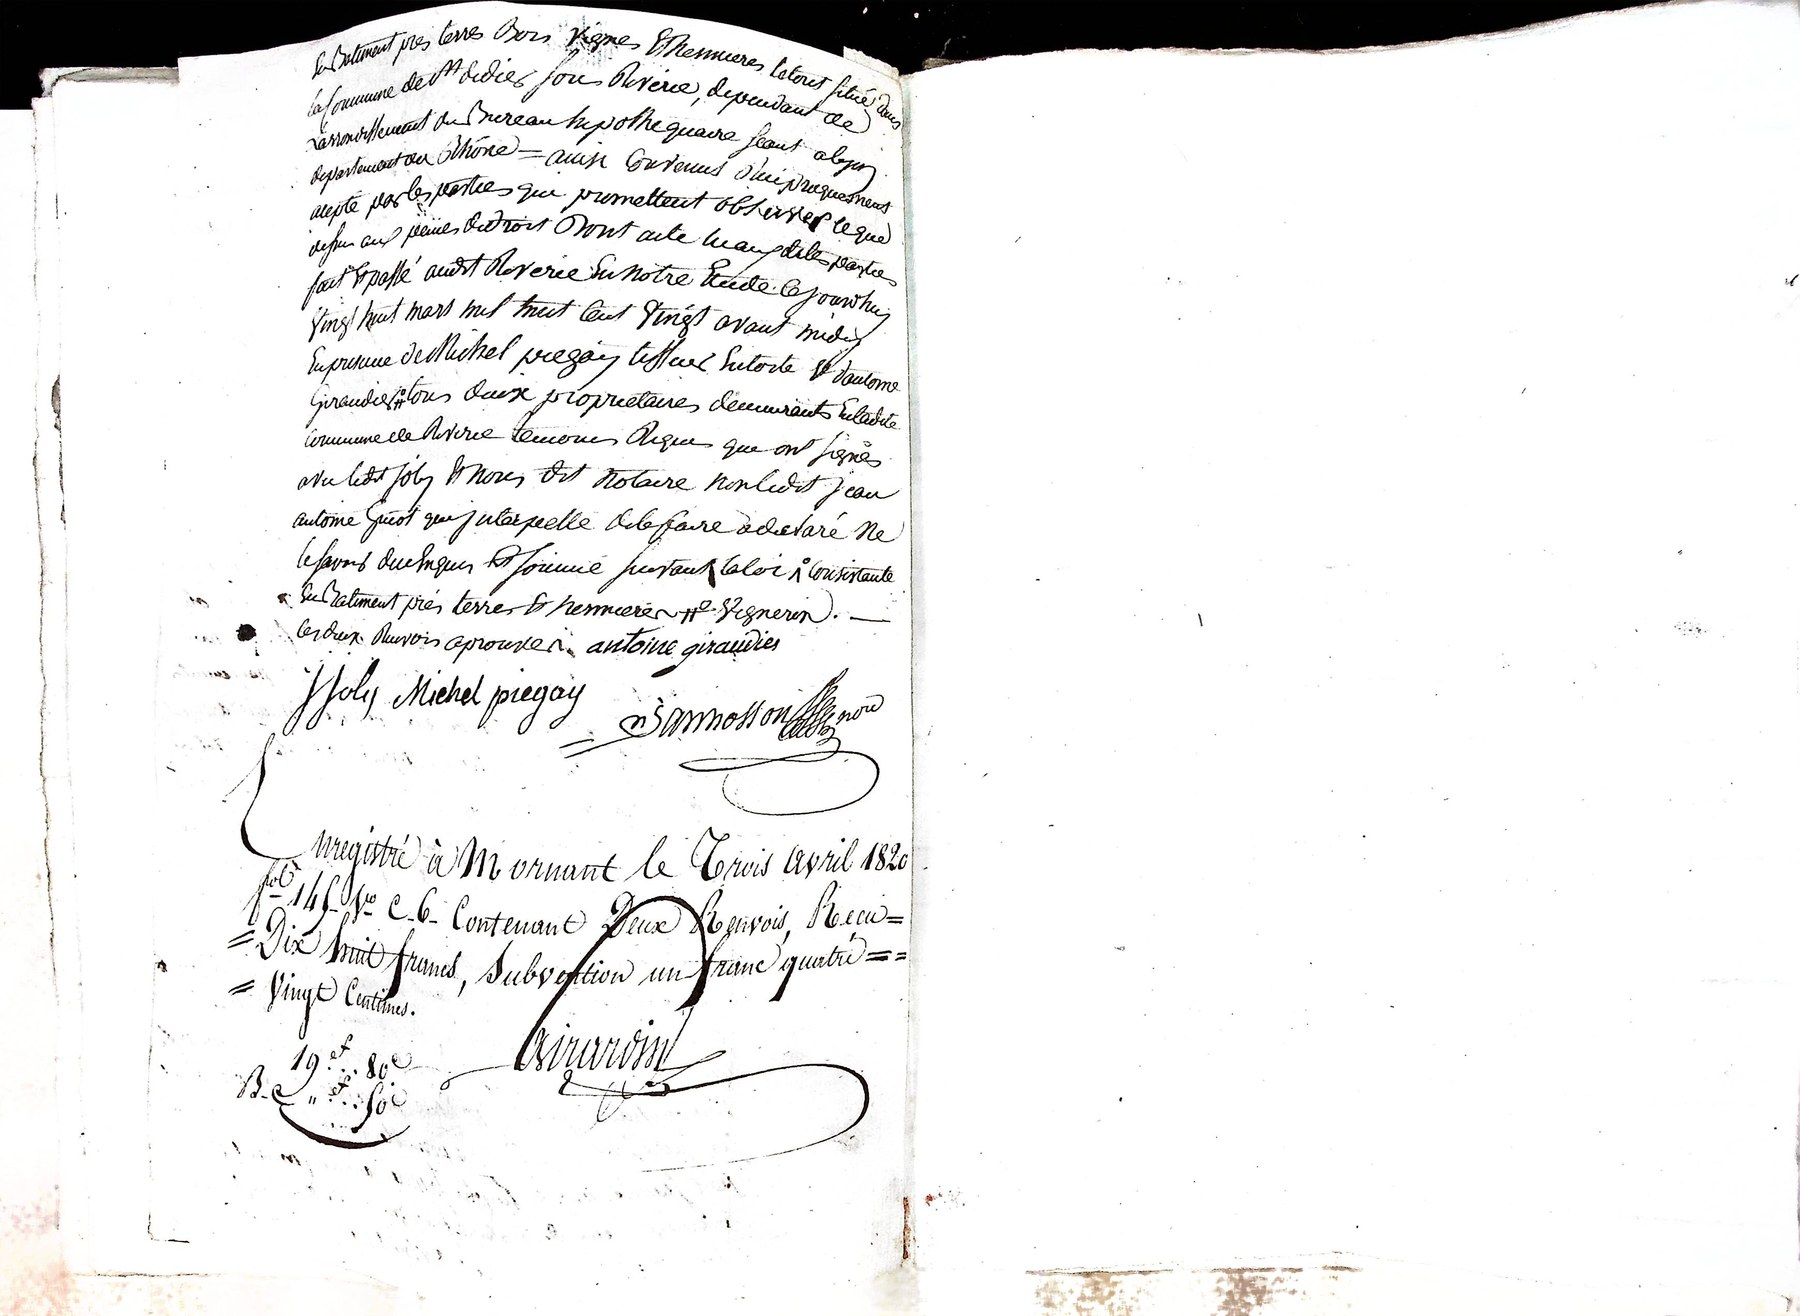 En Batiment prés terres Bois Vignes & hermieres le tout situé dans
la Commune de St didier sous Riverie, dependant de
L'arrondissement du Bureau hypothequaire seant a lyon
departement du Rhône = ainsi Convenus réciproquement
acepté par les parties qui promettent observer le que
dessus aux peines de droit Dont acte lu aux dites parties
fait & passé audit Riverie En notre Etude Cejourdhuy
Vingt huit mars mil huit Cent Vingt avant midy
En presence de Michel piegay tissier En toile & d'antoine
Giraudier # tous deux proprietaires demeurants En ladite
commune de Riverie temoins Requis que ont signés
avec ledit joly & nous dit notaire non ledit jean
antoine Guiot qui interpellé de le faire a declaré ne
le savoir duement Requis & sommé suivant la loi Consistante
En Batiment prés terres & hermieres # Vigneron. —
les deux Renvois aprouvés. antoine giraudier
J Joly Michel piegay
Bannosson nore
Enregistré à Mornant le Trois avril 1820
fol 145 vo C. 6. Contenant Deux Renvois, Recu =
= Dix huit francs, Subvention un franc quatre = =
= Vingt Centimes.
19 f .. 80 c
Girardin
B. c " f ... 50 c